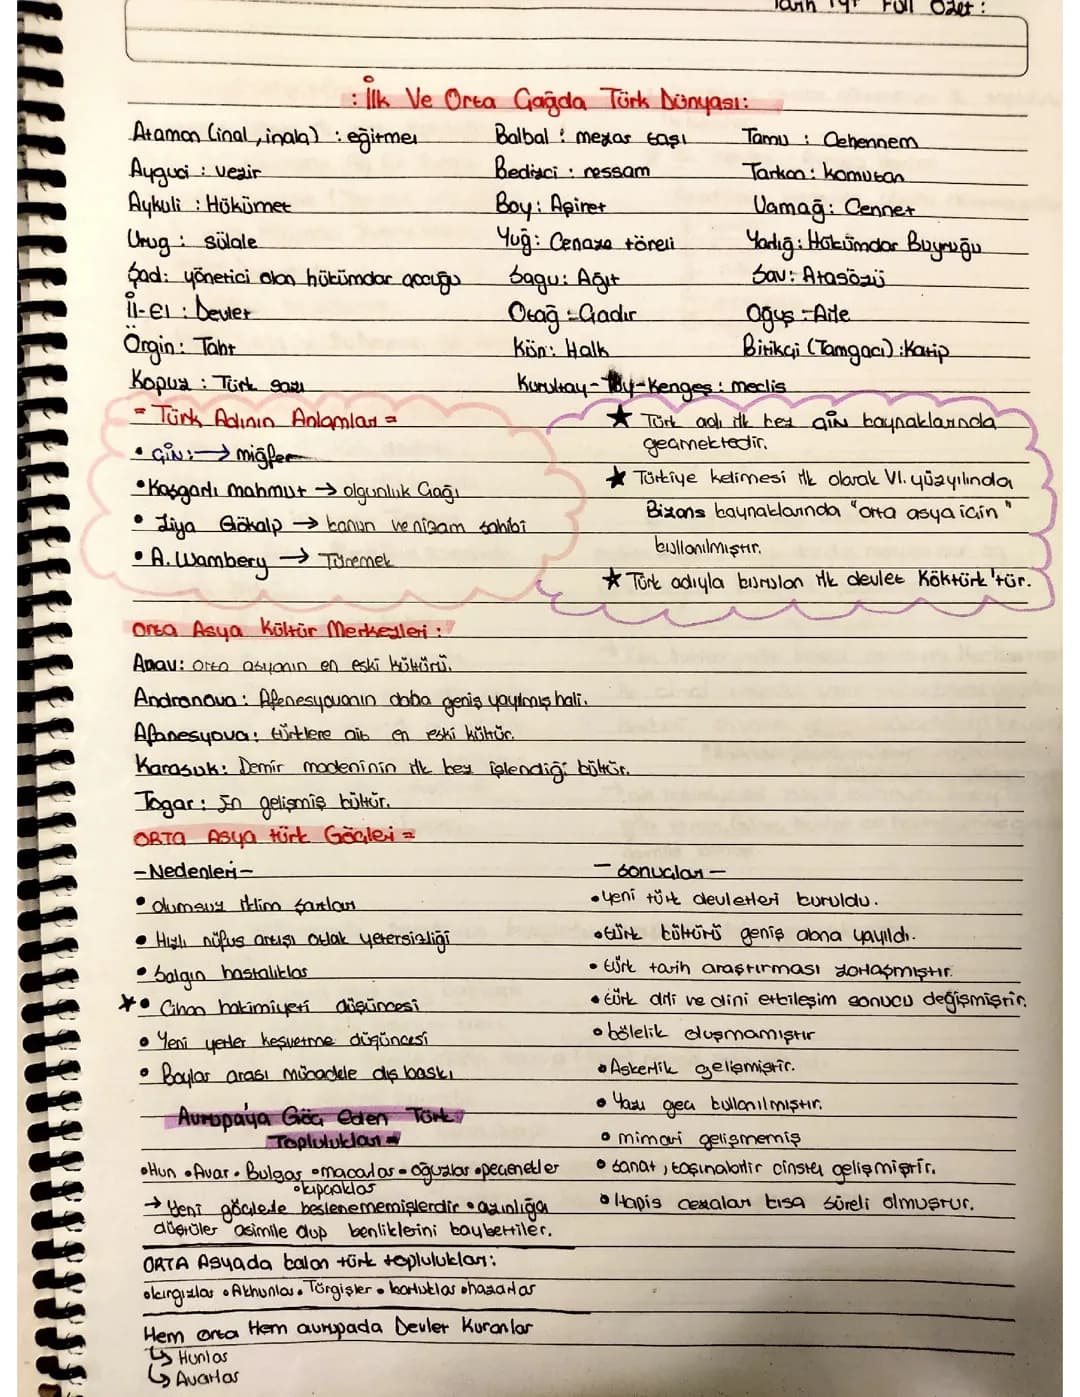 Tarih TYT Full Özet :
: İlk Ve Orta Çağda Türk Dünyası:
Ataman (inal, inala) : eğitmen
Balbal : mezar taşı
Tamu : Cehennem
Ayguci : vezir
Bedizci : ressam
Tarkan : komutan
Aykuli : Hükümet
Boy : Aşiret
Uamağ : Cennet
Urug : sülale
Yuğ : Cenaze töreli
Yarlığ : Hükümdar Buyruğu
Şad : yönetici olan hükümdar çocuğu
Sagu : Ağıt
Sav : Atasözü
İl-el : Devlet
Otağ : Çadır
Oğuş : Aile
Örgin : Taht
Kün : Halk
Bitikçi (Tamgacı) : Katip
Kopuz : Türk sazı
Kurultay-Toy-Kengeş : meclis
= Türk Adının Anlamları =
• ÇİN : → miğfer
• Kaşgarlı mahmut → olgunluk Çağı
• Ziya Gökalp → kanun ve nizam sahibi
• A. Wambery → Türemek
★ Türk adı ilk kez çin kaynaklarında
geçmektedir.
★ Türkiye kelimesi ilk olarak VI. yüzyılında
Bizans kaynaklarında "orta asya için"
kullanılmıştır.
★ Türk adıyla kurulan ilk devlet Köktürk'tür.
Orta Asya Kültür Merkezleri :
Anav : orta asyanın en eski kültürü.
Andronova : Afenesyovanın daha geniş yayılmış hali.
Afanesyova : türklere ait en eski kültür.
Karasuk : Demir madeninin ilk kez işlendiği kültür.
Togar : En gelişmiş kültür.
ORTA ASya türk Göçleri =
- Nedenleri -
• olumsuz iklim şartları
• Hızlı nüfus artışı otlak yetersizliği
• Salgın hastalıklar
★• Cihan hakimiyeti düşüncesi
• Yeni yerler keşvetme düşüncesi
• Boylar arası mücadele dış baskı
- Sonuçları -
• yeni türk devletleri kuruldu.
• türk kültürü geniş alana yayıldı.
• türk tarih araştırması zorlaşmıştır.
• türk dili ve dini etkileşim sonucu değişmiştir.
• bölelik oluşmamıştır
• Askerlik gelişmiştir.
• Yazı geç kullanılmıştır.
• mimari gelişmemiş
• Sanat, taşınabilir cinsten gelişmiştir.
• Hapis cezaları kısa süreli olmuştur.
Avrupa'ya Göç Eden Türk
Toplulukları =
• Hun • Avar • Bulgar • macarlar • oğuzlar • peçenekler
• kıpçaklar
→ Yeni göçlerle beslenememişlerdir • azınlığa
düştüler asimile olup benliklerini kaybettiler.
ORTA ASyada kalan türk toplulukları :
• kırgızlar • Akhunlar • Türgişler • karluklar • hazarlar
Hem orta Hem avrupada Devlet Kuranlar
↳ Hunlar
↳ Avarlar